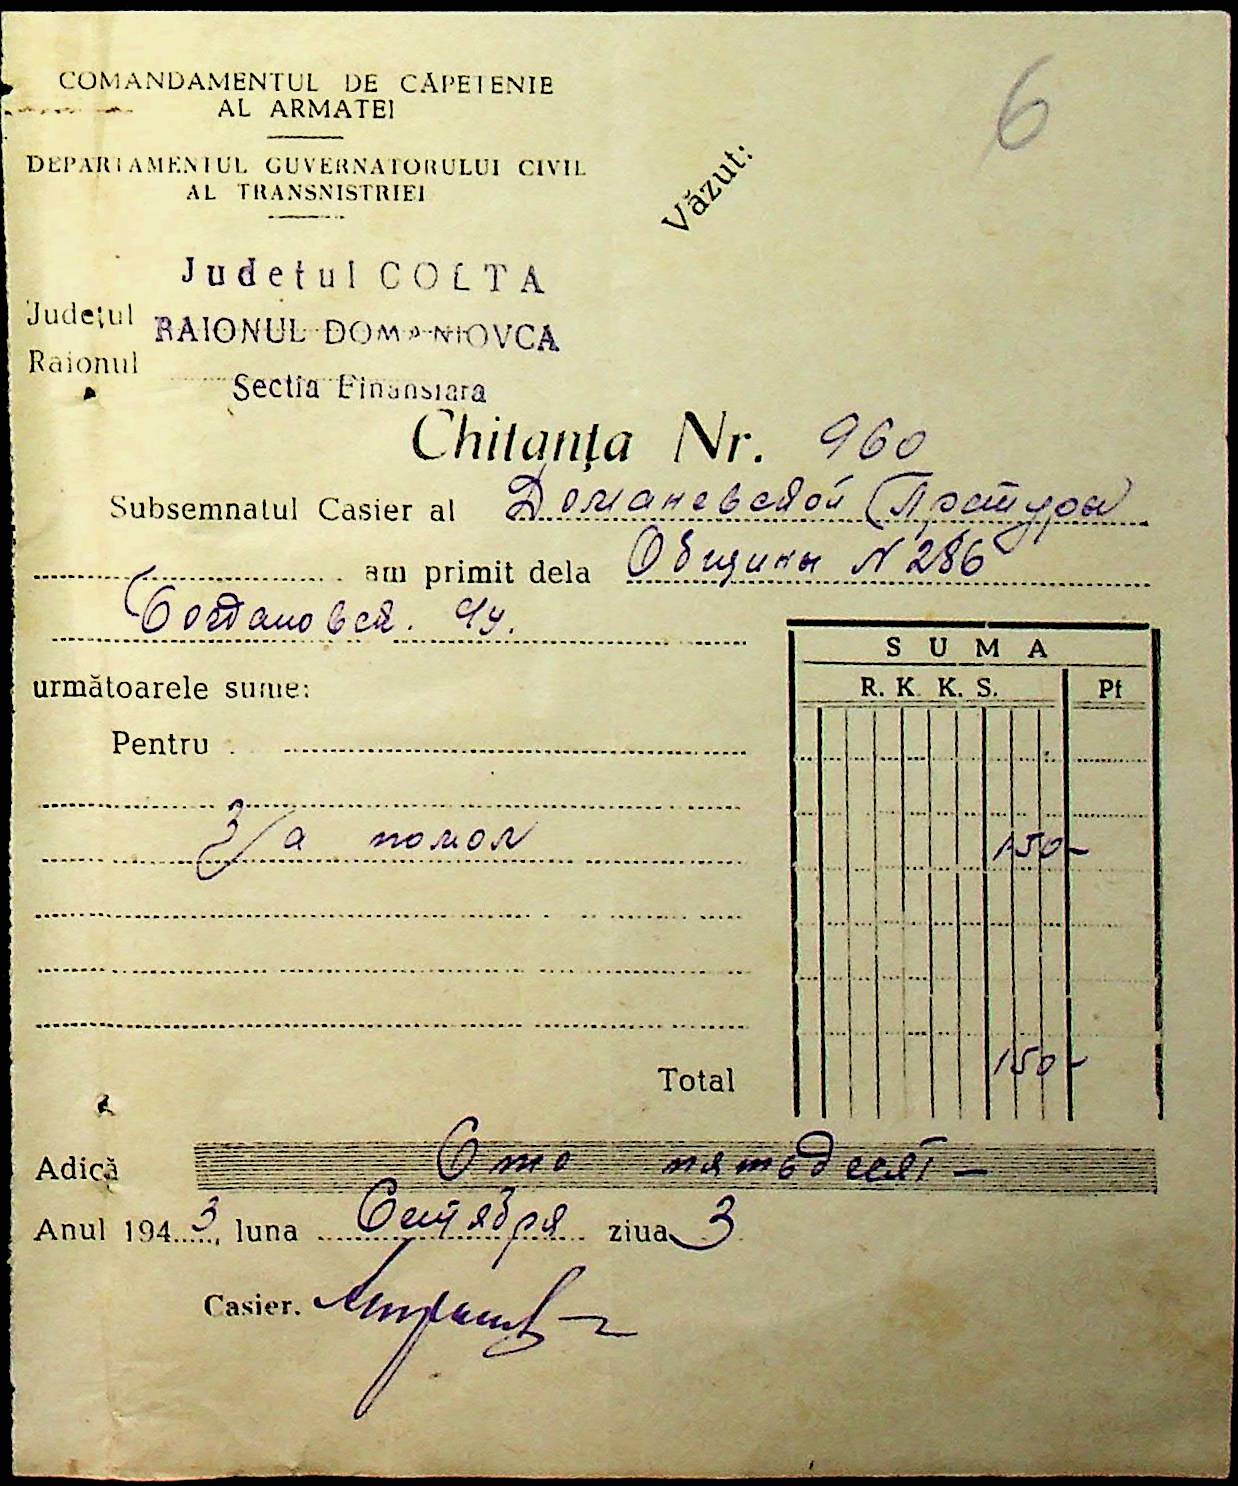 COMANDAMENTUL DE CĂPETENIE
AL ARMATEI
6
DEPARTAMENTUL GUVERNATORULUI CIVIL
AL TRANSNISTRIEI
Văzut:
Judetul COLTA
Județul
RAIONUL DOMANIOVCA
Raionul
Sectia Finansiara
Chitanța Nr. 960
Subsemnatul Casier al Доманевской Претуры
am primit dela Общины N 286
Богдановск.
SUMA
următoarele sume:
R. K. K. S. Pf
Pentru
За помол 150-
Total 150-
Adică Сто пятьдесят -
Anul 1943, luna Сентября ziua 3
Casier.